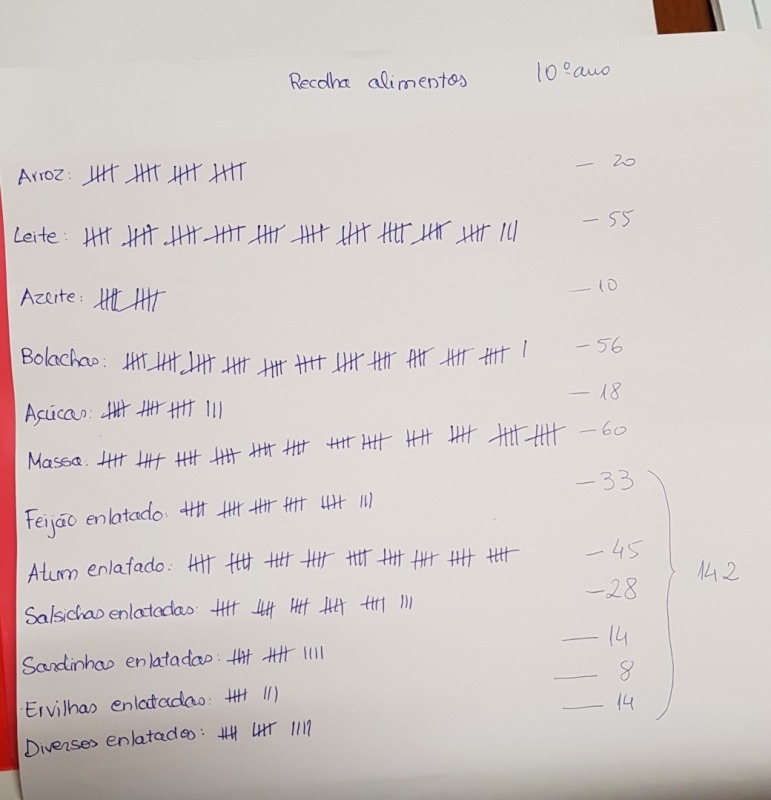 Recolha alimentos 10º ano
Arroz: 𝍸 𝍸 𝍸 𝍸 — 20
Leite: 𝍸 𝍸 𝍸 𝍸 𝍸 𝍸 𝍸 𝍸 𝍸 𝍸 ||| — 55
Azeite: 𝍸 𝍸 — 10
Bolachas: 𝍸 𝍸 𝍸 𝍸 𝍸 𝍸 𝍸 𝍸 𝍸 𝍸 𝍸 | — 56
Açúcar: 𝍸 𝍸 𝍸 ||| — 18
Massa: 𝍸 𝍸 𝍸 𝍸 𝍸 𝍸 𝍸 𝍸 𝍸 𝍸 𝍸 𝍸 — 60
Feijão enlatado: 𝍸 𝍸 𝍸 𝍸 𝍸 ||| — 33
Atum enlatado: 𝍸 𝍸 𝍸 𝍸 𝍸 𝍸 𝍸 𝍸 𝍸 — 45
142
Salsichas enlatadas: 𝍸 𝍸 𝍸 𝍸 𝍸 ||| — 28
Sardinhas enlatadas: 𝍸 𝍸 |||| — 14
Ervilhas enlatadas: 𝍸 ||| — 8
Diversos enlatados: 𝍸 𝍸 |||| — 14